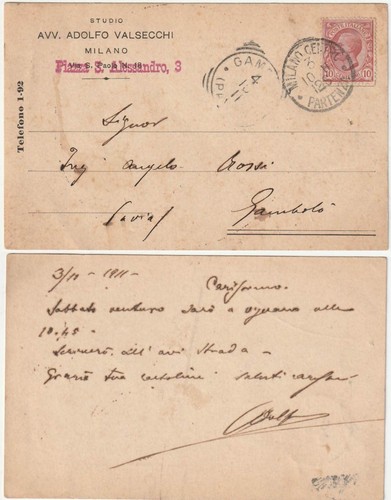 STUDIO
AVV. ADOLFO VALSECCHI
MILANO
Via S. Paolo N. 16
Piazza S. Alessandro, 3
Telefono 1-92
GAMB
4
11
(PV
MILANO CENTRO
PARTENZA
POSTE ITALIANE
10 10
Signor
Ing Angelo Rossi
(Pavia)
Gambolò
3/11 - 1911 -
Carissimo
Sabbato venturo sarò a alle
10.45 -
all' strada -
Grazie tua cartolina saluti
Adolfo